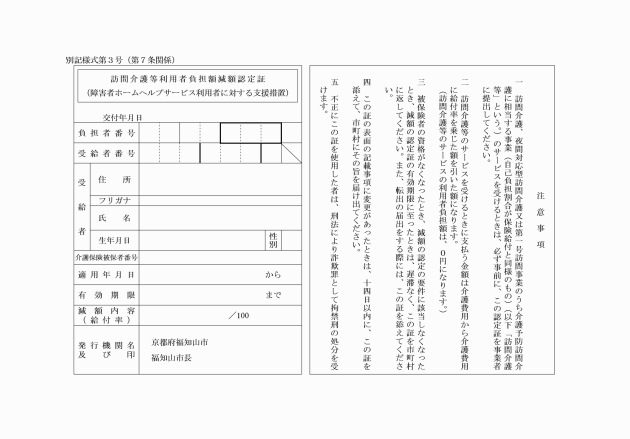 別記様式第３号（第７条関係）
訪問介護等利用者負担額減額認定証
（障害者ホームヘルプサービス利用者に対する支援措置）
交付年月日
負担者番号
受給者番号
受給者
住所
フリガナ
氏名
生年月日
性別
介護保険被保者番号
適用年月日
から
有効期限
まで
減額内容
（給付率）
／100
発行機関名
及び印
京都府福知山市
福知山市長
注意事項
一　訪問介護、夜間対応型訪問介護又は第一号訪問事業のうち介護予防訪問介
護に相当する事業（自己負担割合が保険給付と同様のもの）（以下「訪問介護
等」という。）のサービスを受けるときは、必ず事前に、この認定証を事業者
に提出してください。
二　訪問介護等のサービスを受けるときに支払う金額は介護費用から介護費用
に給付率を乗じた額を引いた額になります。
（訪問介護等のサービスの利用者負担額は、０円になります。）
三　被保険者の資格がなくなったとき、減額の認定の要件に該当しなくなった
とき、減額の認定証の有効期限に至ったときは、遅滞なく、この証を市町村
に返してください。また、転出の届出をする際には、この証を添えてくださ
い。
四　この証の表面の記載事項に変更があったときは、十四日以内に、この証を
添えて、市町村にその旨を届け出てください。
五　不正にこの証を使用した者は、刑法により詐欺罪として拘禁刑の処分を受
けます。